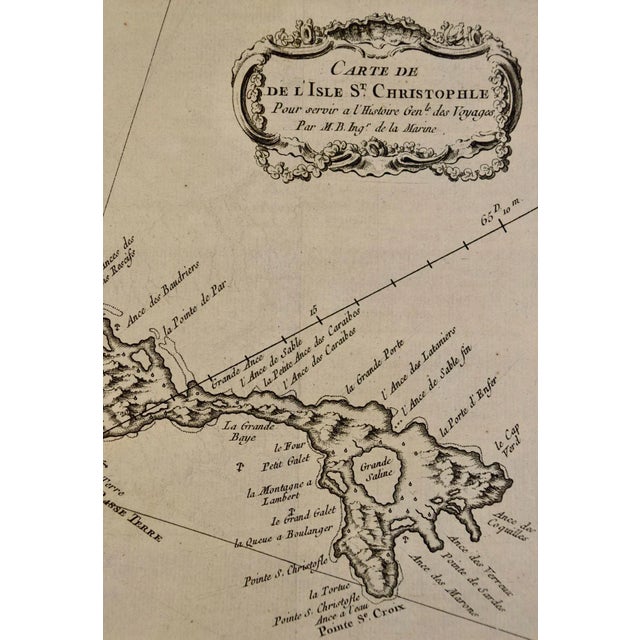 CARTE DE
DE L'ISLE ST. CHRISTOPHLE
Pour servir a l'Histoire Gen.le des Voyages
Par M. B. Ing.r de la Marine
65 D. 10 m.
15
Ances des
Ance des Baudriers
la Pointe de Par
Grande Ance
l'Ance de Sable
la Petite Ance des Caraibes
l'Ance des Caraibes
la Grande Porte
l'Ance des Lataniers
l'Ance de Sable fin
la Porte d'Enfer
le Cap
Verd
LA Grande
Baye
le Four
Petit Galet
la Montagne a
Lambert
le Grand Galet
la Queue a Boulanger
Grande
Saline
Pointe S. Christofle
la Tortue
Pointe S. Christofle
Ance à l'eau
Pointe Ste. Croix
Ance des
Coquilles
Ance des Verreux
Pointe de Sardes
Ance des Marons
Terre
BASSE TERRE